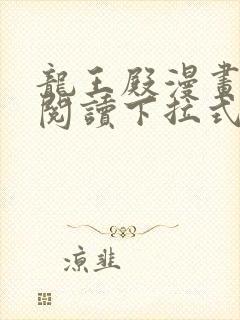 龍王殿漫畫
閱讀下拉式
涼韭